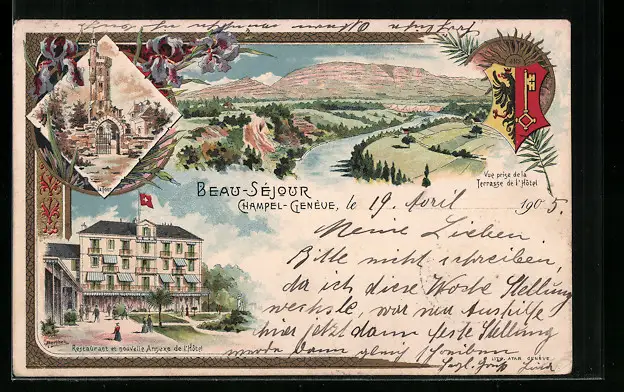 La Tour
Vue prise de la
Terrasse de l'Hôtel
BEAU-SÉJOUR
CHAMPEL-GENÈVE, le 19 April 1905.
Meine Lieben.
Bitte nicht schreiben,
da ich diese Woche Stellung
wechsle, war nur Aushilfe
hier jetzt dann feste Stellung
werde dann gleich schreiben
Herzl. Gruss
Restaurant et nouvelle Annexe de l'Hôtel
LITH. ATAR. GENÈVE